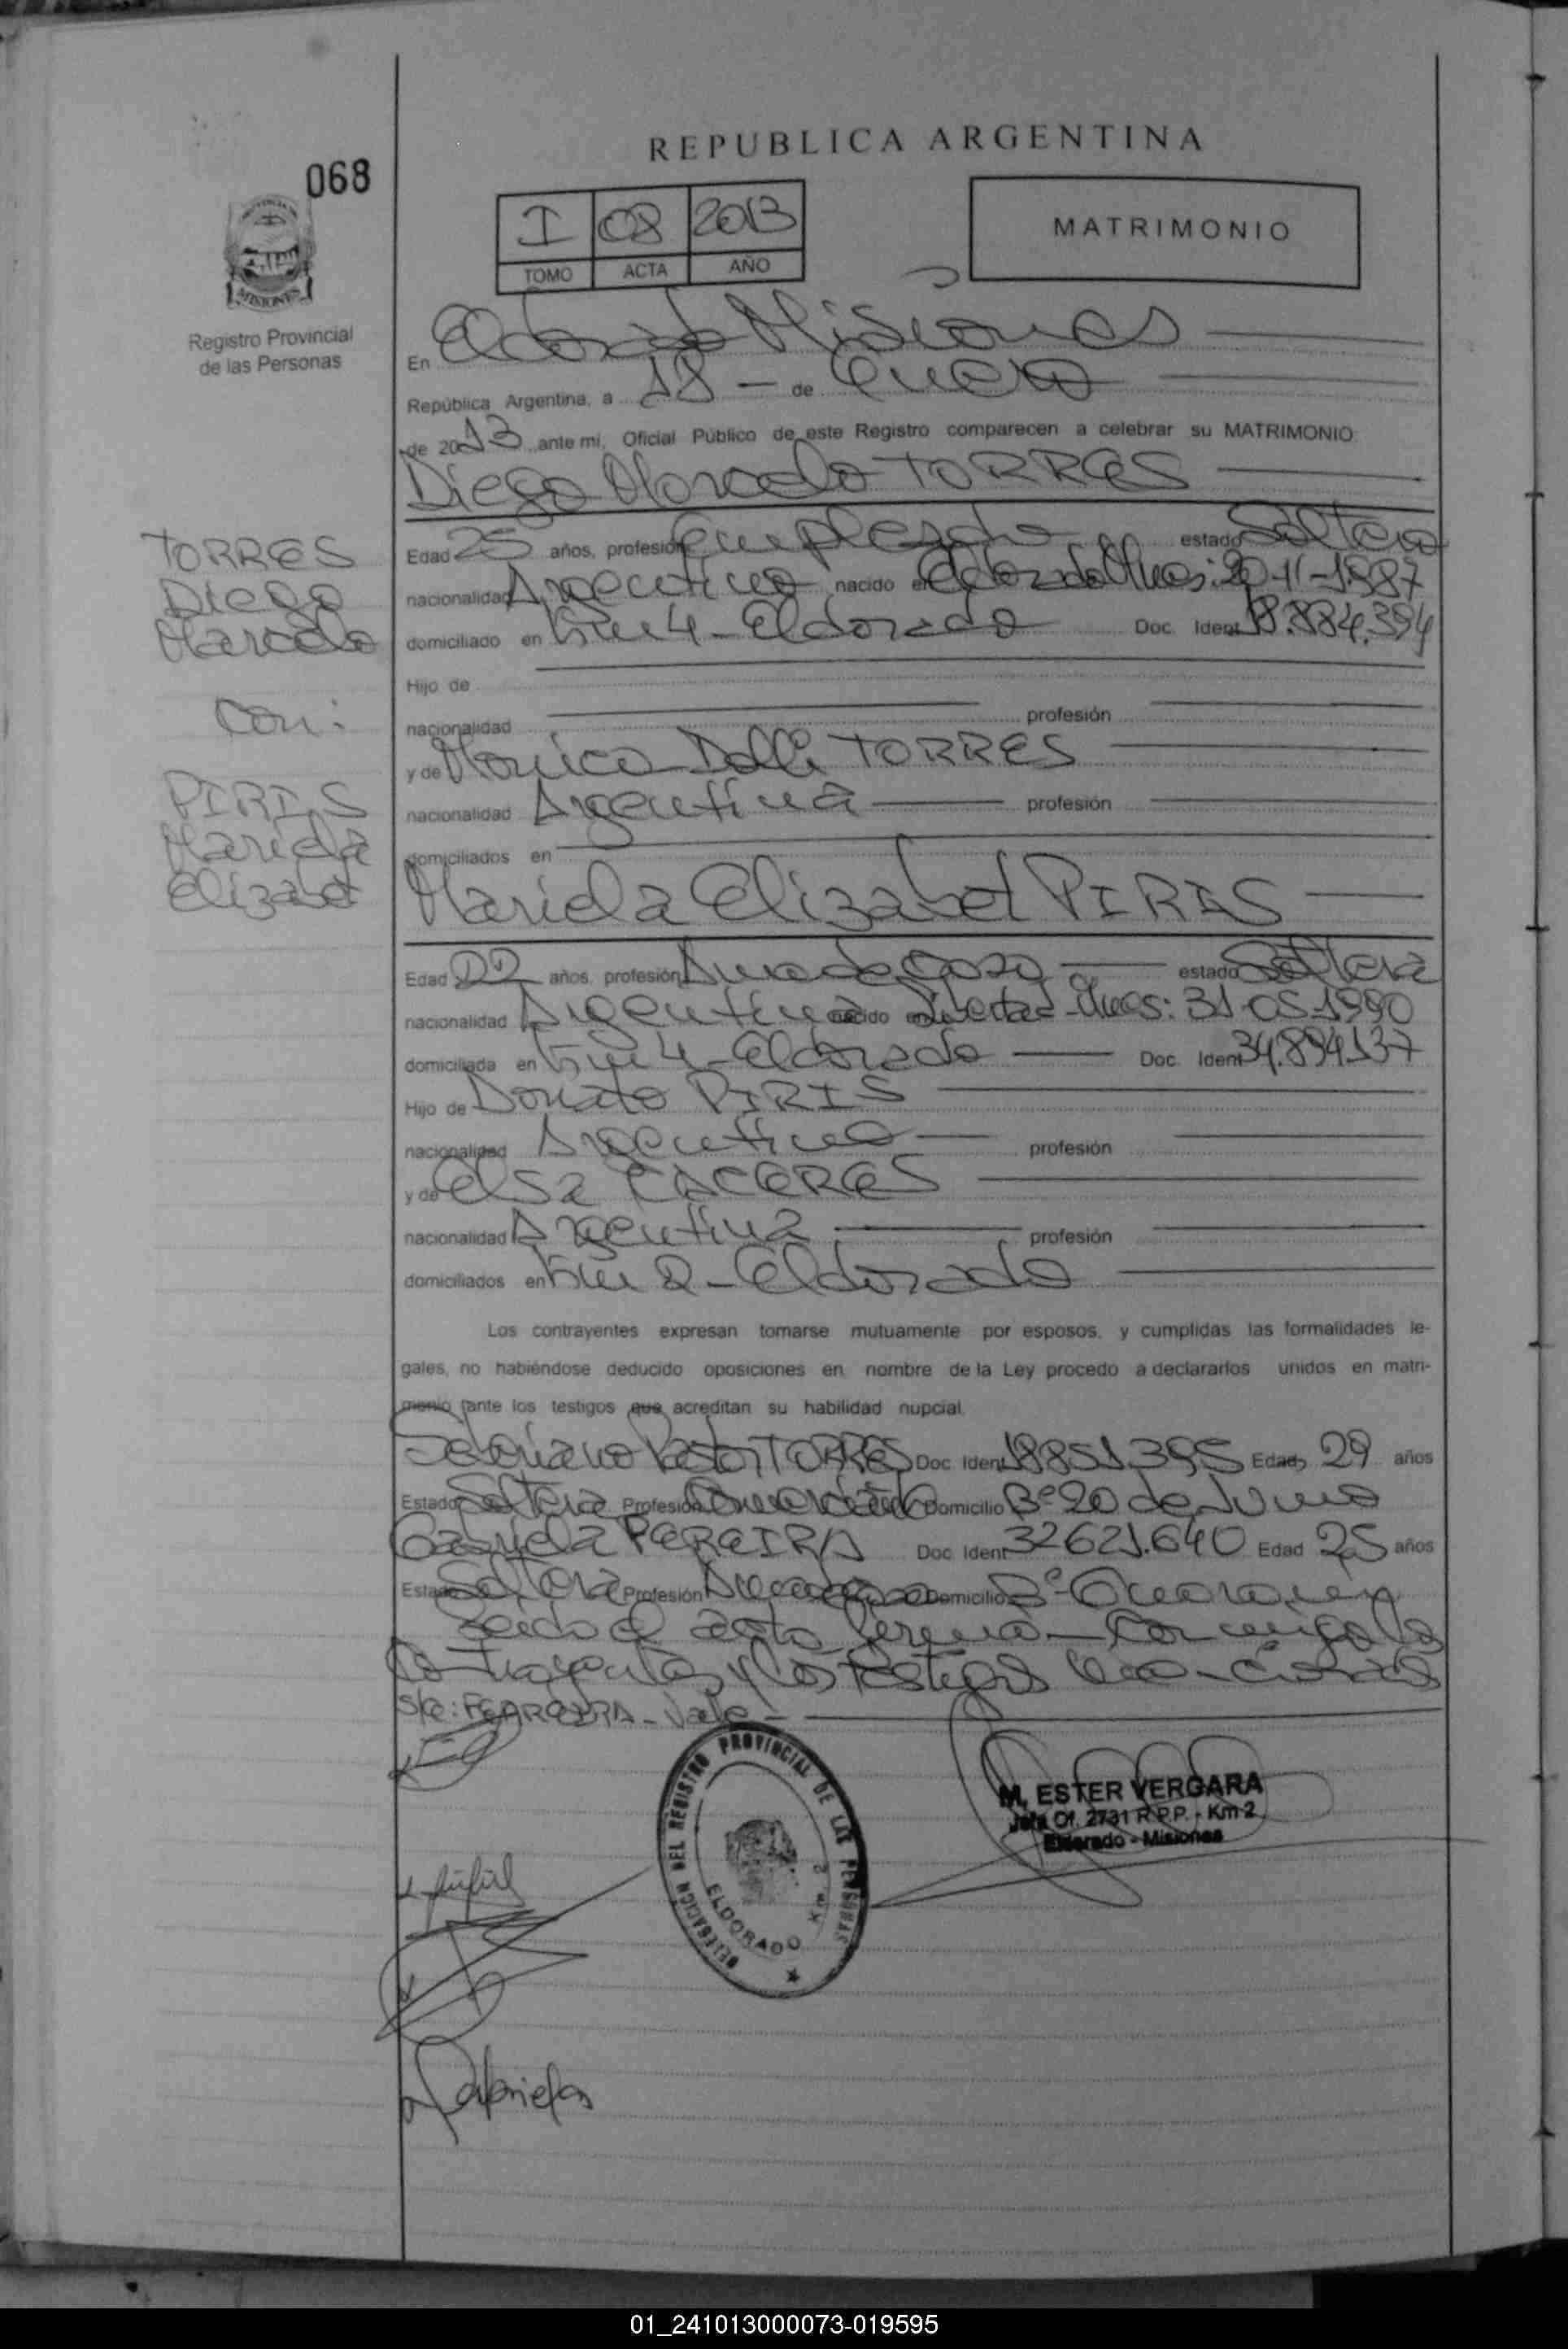 REPUBLICA ARGENTINA
068
I 08 2013
TOMO ACTA AÑO
MATRIMONIO
MISIONES
Registro Provincial
de las Personas
En Eldorado Misiones
República Argentina, a 18 - de Enero
de 2013 ante mi, Oficial Público de este Registro comparecen a celebrar su MATRIMONIO:
Diego Marcelo TORRES
TORRES
Diego
Marcelo
Con:
PIRIS
Mariela
Elizabet
Edad 25 años, profesión Empleado estado Soltero
nacionalidad Argentino nacido en Eldorado Mnes: 20-11-1987
domiciliado en Km 4 - Eldorado Doc. Ident 18.884.394
Hijo de
nacionalidad profesión
y de Monica Delli TORRES
nacionalidad Argentina profesión
domiciliados en
Mariela Elizabet PIRIS
Edad 22 años, profesión Ama de Casa estado Soltera
nacionalidad Argentina nacido en Libertad - Mnes: 31-05-1990
domiciliada en Km 4 - Eldorado Doc. Ident 34.894.137
Hijo de Donato PIRIS
nacionalidad Argentino profesión
y de Elsa CACERES
nacionalidad Argentina profesión
domiciliados en Km 2 - Eldorado
Los contrayentes expresan tomarse mutuamente por esposos, y cumplidas las formalidades le-
gales, no habiéndose deducido oposiciones en nombre de la Ley procedo a declararlos unidos en matri-
monio ante los testigos que acreditan su habilidad nupcial.
TORRES Doc. Ident 18851.395 Edad 29 años
Estado Soltero Profesión Domicilio Bº 20 de Junio
Gabriela PEREIRA Doc. Ident 32621.640 Edad 25 años
Estado Soltera Profesión Ama de Casa Domicilio Bº
Leido el acta firman conmigo los
contrayentes y los testigos
Vale -
DELEGACION DEL REGISTRO PROVINCIAL DE LAS PERSONAS
ELDORADO Km 2
M. ESTER VERGARA
Jefa Of. 2731 R.P.P. - Km 2
Eldorado - Misiones
Gabriela
01_241013000073-019595